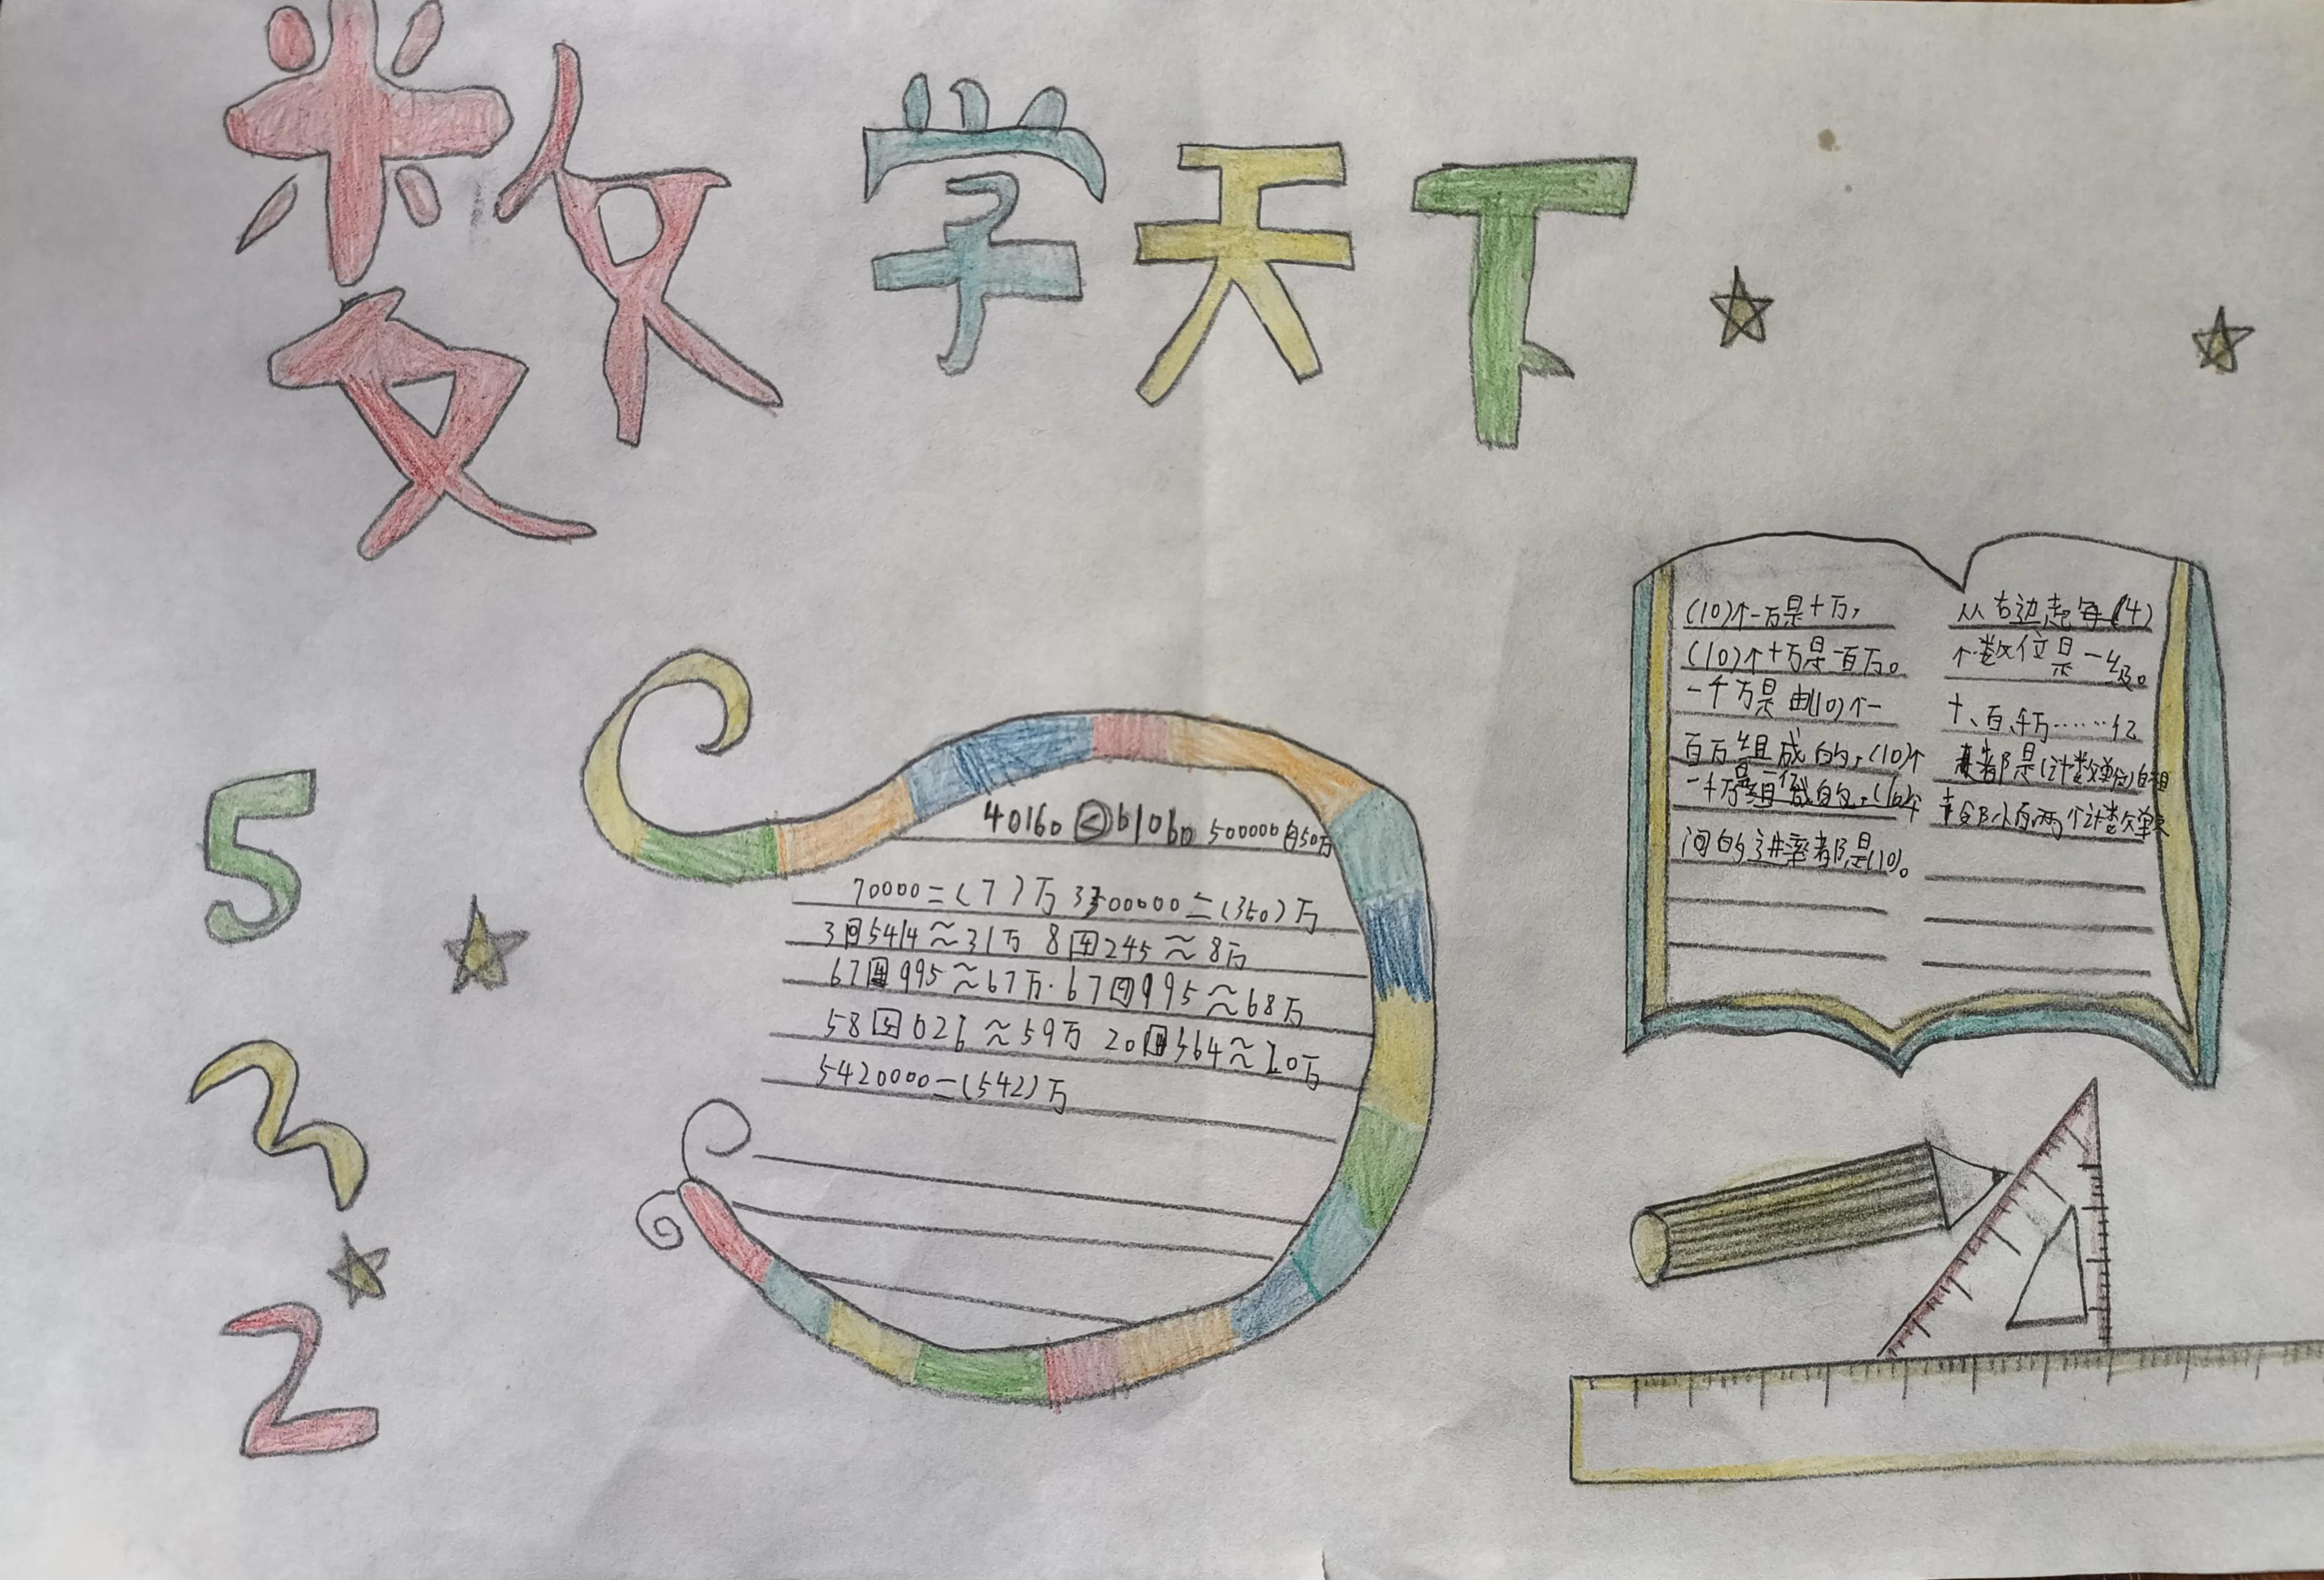 数学天下
40160<61060 500000=50万
70000=(7)万 3500000=(350)万
3 5414≈31万 8④245≈8万
67④995≈67万.67⑨995≈68万
58⑤026≈59万 20④564≈20万
5420000=(542)万
(10)个一万是十万,
(10)个十万是一百万。
一千万是由(10)个一
百万组成的,(10)个
一千万是一亿
间的进率都是(10)。
从右边起每(4)
个数位是一级。
十、百、千、万……亿
都是(计数单位)
每相邻两个计数单
5
3
2